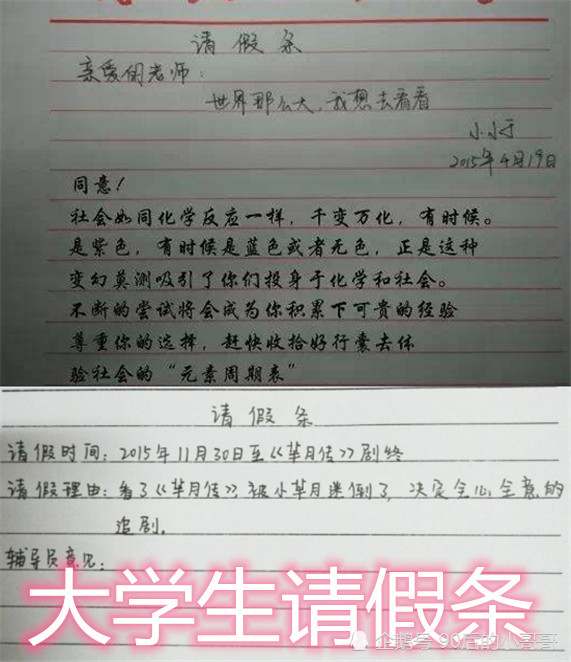 请假条
亲爱的老师：
世界那么大，我想去看看
小小于
2015年4月19日
同意！
社会如同化学反应一样，千变万化，有时候。
是紫色，有时候是蓝色或者无色，正是这种
变幻莫测吸引了你们投身于化学和社会。
不断的尝试将会成为你积累下可贵的经验
尊重你的选择，赶快收拾好行囊去体
验社会的“元素周期表”
请假条
请假时间：2015年11月30日至《芈月传》剧终
请假理由：看了《芈月传》被小芈月迷倒了，决定全心全意的
追剧.
辅导员意见：
大学生请假条
企鹅号 90后的小哥哥